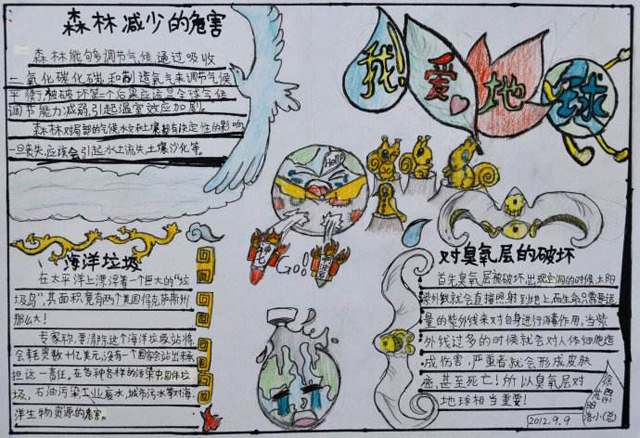 森林减少的危害
森林能够调节气候通过吸收
二氧化碳化碳和制造氧气来调节气候
平衡被破坏第一个后果应该是全球气候
调节能力减弱引起温室效应加剧
森林对局部的气候水文和土壤都有决定性的影响
一旦丧失应该会引起水土流失土壤沙化等。
我!爱地球
Hello
神七
Go!
海洋垃圾
在太平洋上漂浮着一个巨大的“垃
圾岛”,其面积竟有两个美国得克萨斯州
那么大!
专家称,要清除这个海洋垃圾站将
会耗资数十亿美元,没有一个国家会站出来承
担这一责任,在各种各样的污染中固体垃
圾,石油污染工业废水,城市污水等对海
洋生物资源的危害。
对臭氧层的破坏
首先臭氧层被破坏出现空洞的时候,太阳
紫外线就会直接照射到地上而生命只需要适
量的紫外线来对自身进行消毒作用,当紫
外线过多的时候就会对人体细胞造
成伤害,严重者就会形成皮肤
癌,甚至死亡!所以臭氧层对
地球相当重要!
2012.9.9